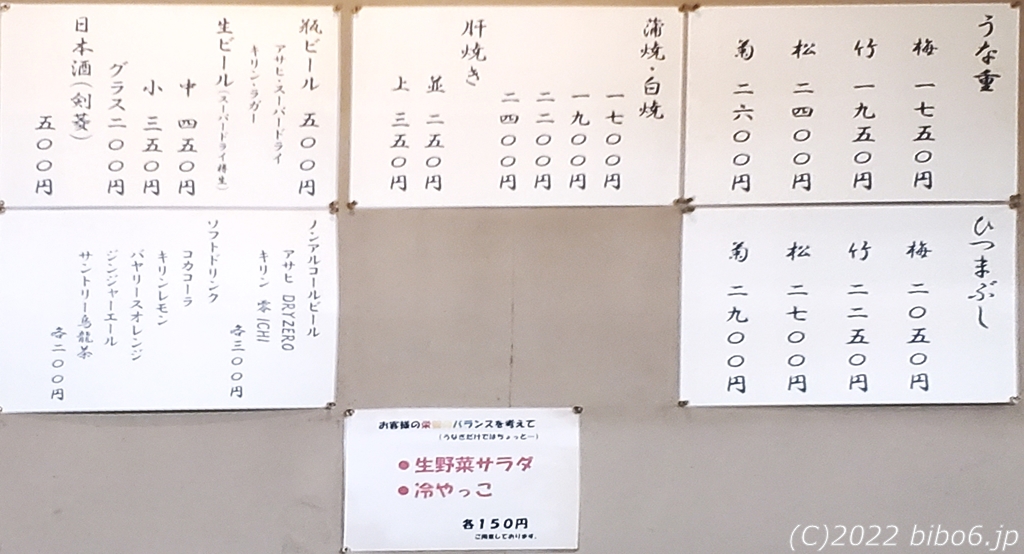 うな重
梅 一七五〇円
竹 一九五〇円
松 二四〇〇円
菊 二六〇〇円
蒲焼・白焼
一七〇〇円
一九〇〇円
二二〇〇円
二四〇〇円
肝焼き
並 二五〇円
上 三五〇円
瓶ビール 五〇〇円
アサヒ・スーパードライ
キリン・ラガー
生ビール(スーパードライ樽生)
中 四五〇円
小 三五〇円
グラス二〇〇円
日本酒(剣菱)
五〇〇円
ひつまぶし
梅 二〇五〇円
竹 二二五〇円
松 二七〇〇円
菊 二九〇〇円
ノンアルコールビール
アサヒ DRYZERO
キリン 零ICHI
各三〇〇円
ソフトドリンク
コカコーラ
キリンレモン
バヤリースオレンジ
ジンジャーエール
サントリー烏龍茶
各二〇〇円
お客様の栄養バランスを考えて
(うなぎだけではちょっと…)
●生野菜サラダ
●冷やっこ
各150円
ご用意しております。
(C)2022 bibo6.jp